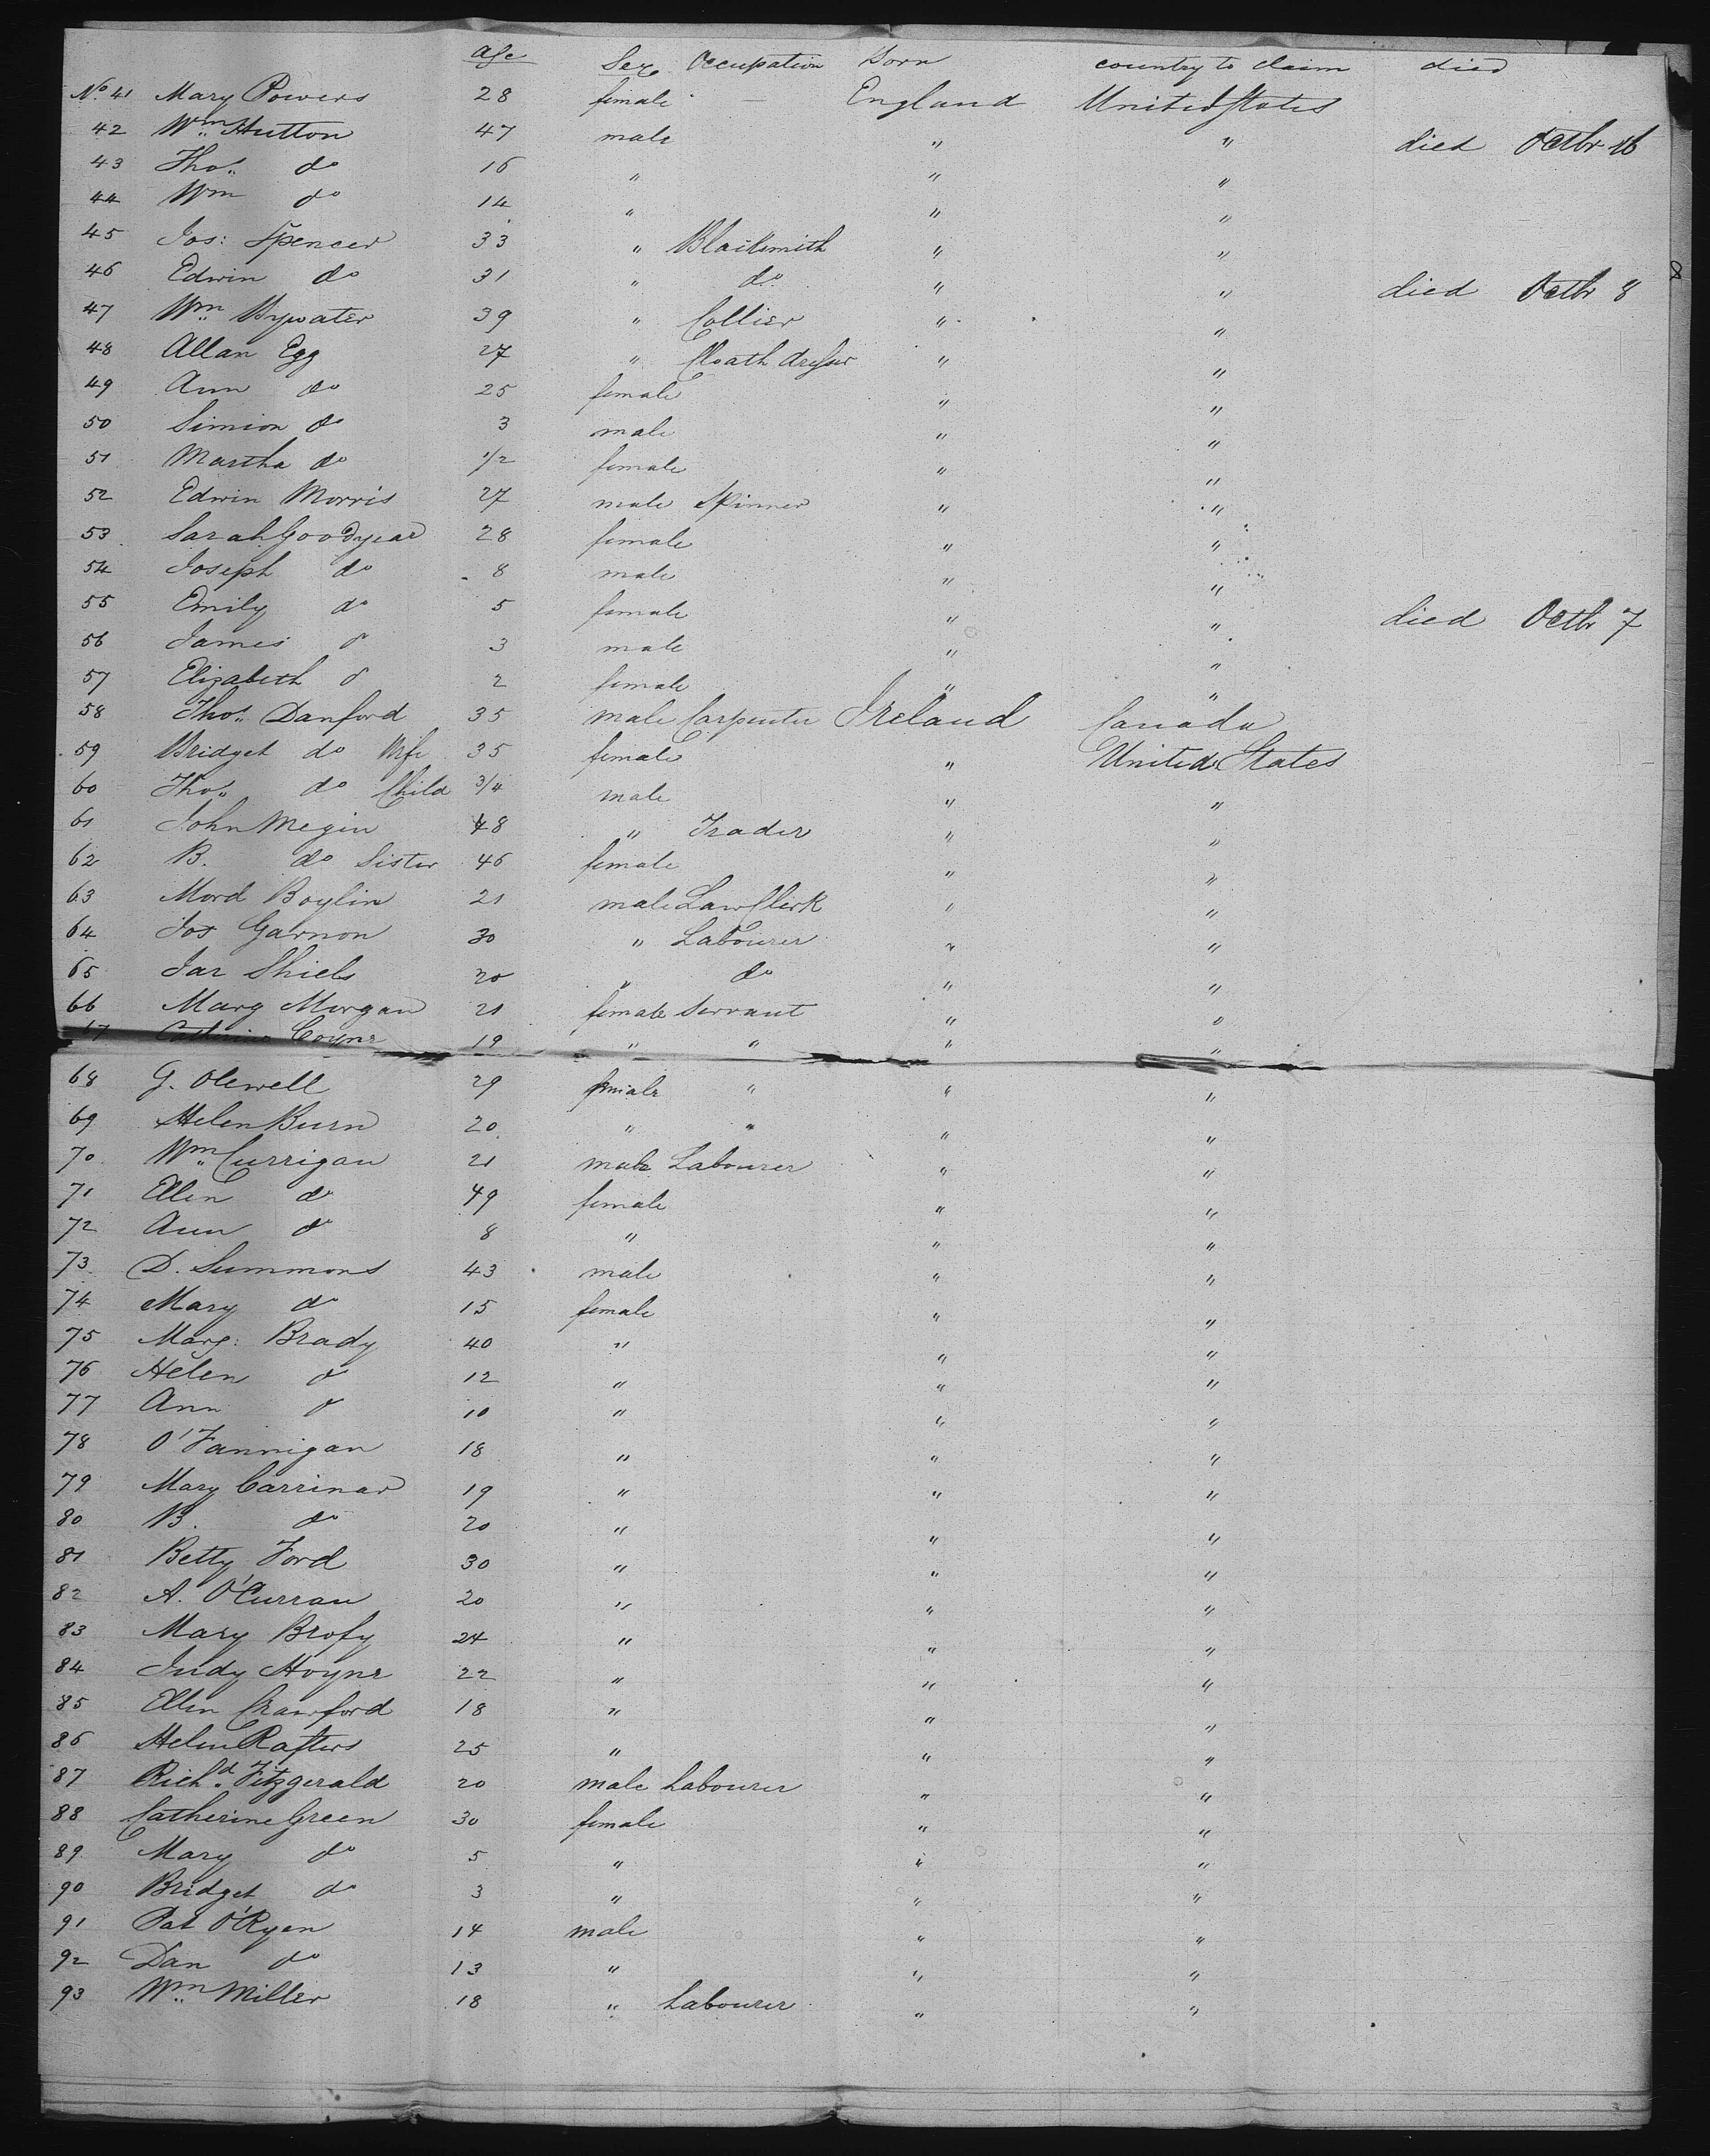 Age Sex Occupation Born country to claim died
No. 41 Mary Powers 28 female — England United States
42 Wm Hutton 47 male " " died Octbr 16
43 Thos do 16 " " "
44 Wm do 14 " " "
45 Jos: Spencer 33 " Blacksmith " "
46 Edwin do 31 " do " " died Octbr 8
47 Wm Bywater 39 " Collier " "
48 Allan Egg 27 " Cloath dresser " "
49 Ann do 25 female " "
50 Simion do 3 male " "
51 Martha do 1/2 female " "
52 Edwin Morris 27 male Spinner " "
53 Sarah Goodyear 28 female " "
54 Joseph do 8 male " "
55 Emily do 5 female " " died Octbr 7
56 James do 3 male " "
57 Elizabeth do 2 female " "
58 Thos Danford 35 male Carpenter Ireland Canada
59 Bridget do Wife 35 female " United States
60 Thos do Child 3/4 male " "
61 John Megin 48 " Trader " "
62 B. do Sister 46 female " "
63 Mord Boylin 21 male Law Clerk " "
64 Jos Garnon 30 " Labourer " "
65 Jas Shiels 20 " do " "
66 Marg Morgan 21 female Servant " "
67 Coyne 19 " " " "
68 G. Olewell 29 female " " "
69 Helen Burn 20 " " " "
70 Wm Currigan 21 male Labourer " "
71 Ellen do 49 female " "
72 Ann do 8 " " "
73 D. Summons 43 male " "
74 Mary do 15 female " "
75 Marg: Brady 40 " " "
76 Helen do 12 " " "
77 Ann do 10 " " "
78 O'Fannigan 18 " " "
79 Mary Carrinar 19 " " "
80 B. do 20 " " "
81 Betty Ford 30 " " "
82 A. O'Curran 20 " " "
83 Mary Brofy 24 " " "
84 Judy Hoyne 22 " " "
85 Ellen Crawford 18 " " "
86 Helen Rafters 25 " " "
87 Richd Fitzgerald 20 male Labourer " "
88 Catherine Green 30 female " "
89 Mary do 5 " " "
90 Bridget do 3 " " "
91 Pat O'Ryen 14 male " "
92 Dan do 13 " " "
93 Wm Miller 18 " Labourer " "